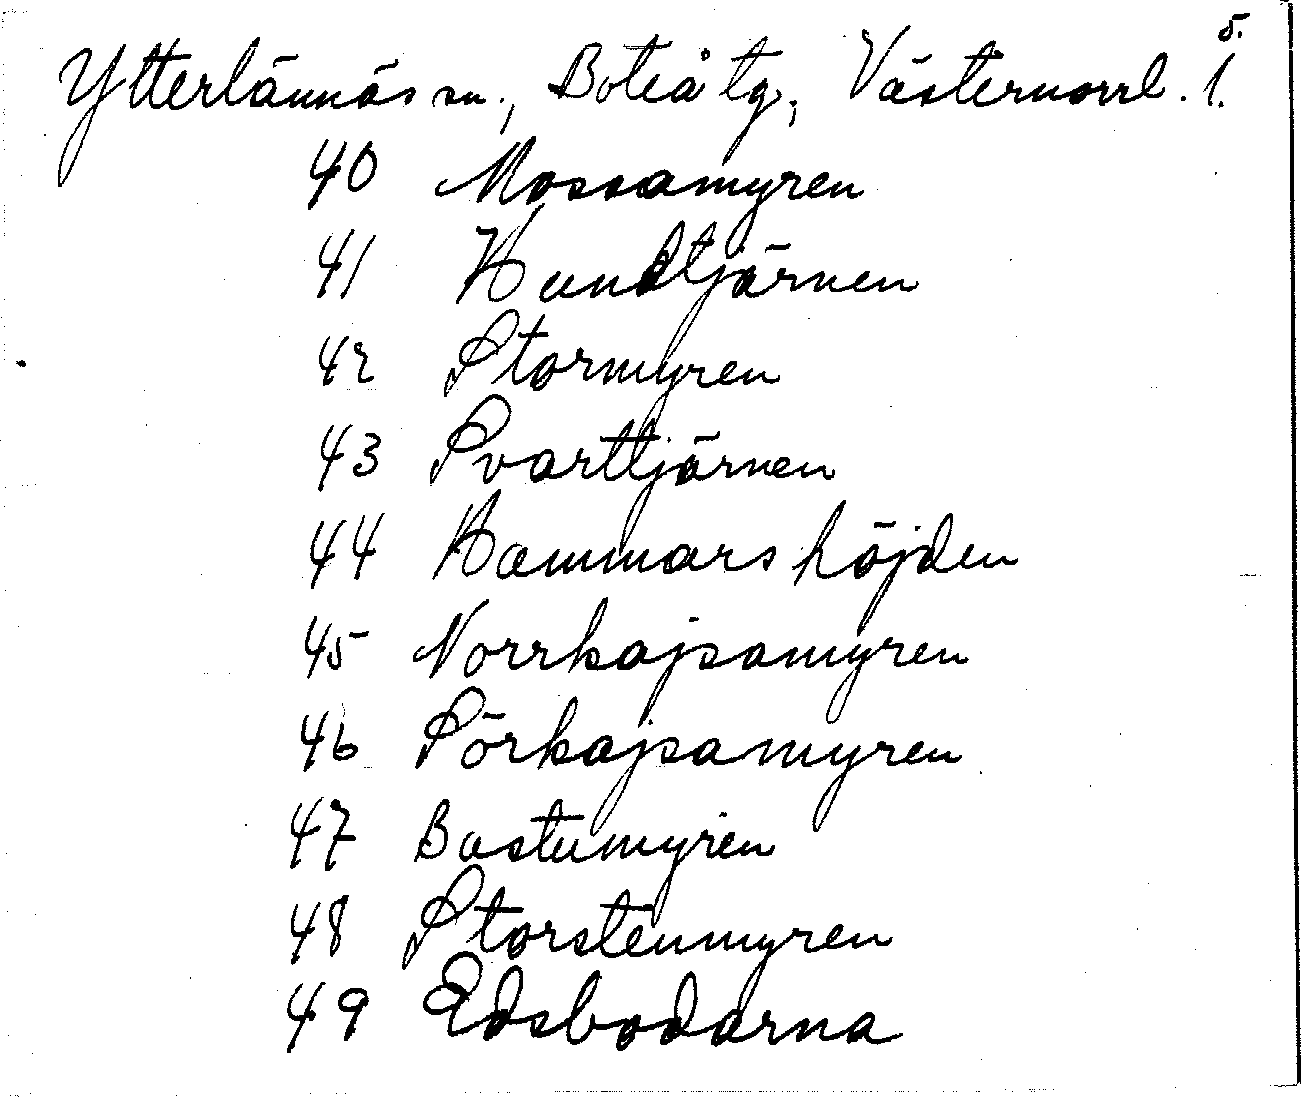 5.
Ytterlännäs sn., Boteå tg, Västernorrl. l.
40 Mossamyren
41 Hundtjärnen
42 Stormyren
43 Svarttjärnen
44 Hammarshöjden
45 Norrkajsamyren
46 Sörkajsamyren
47 Bastumyren
48 Storstenmyren
49 Edsbodarna